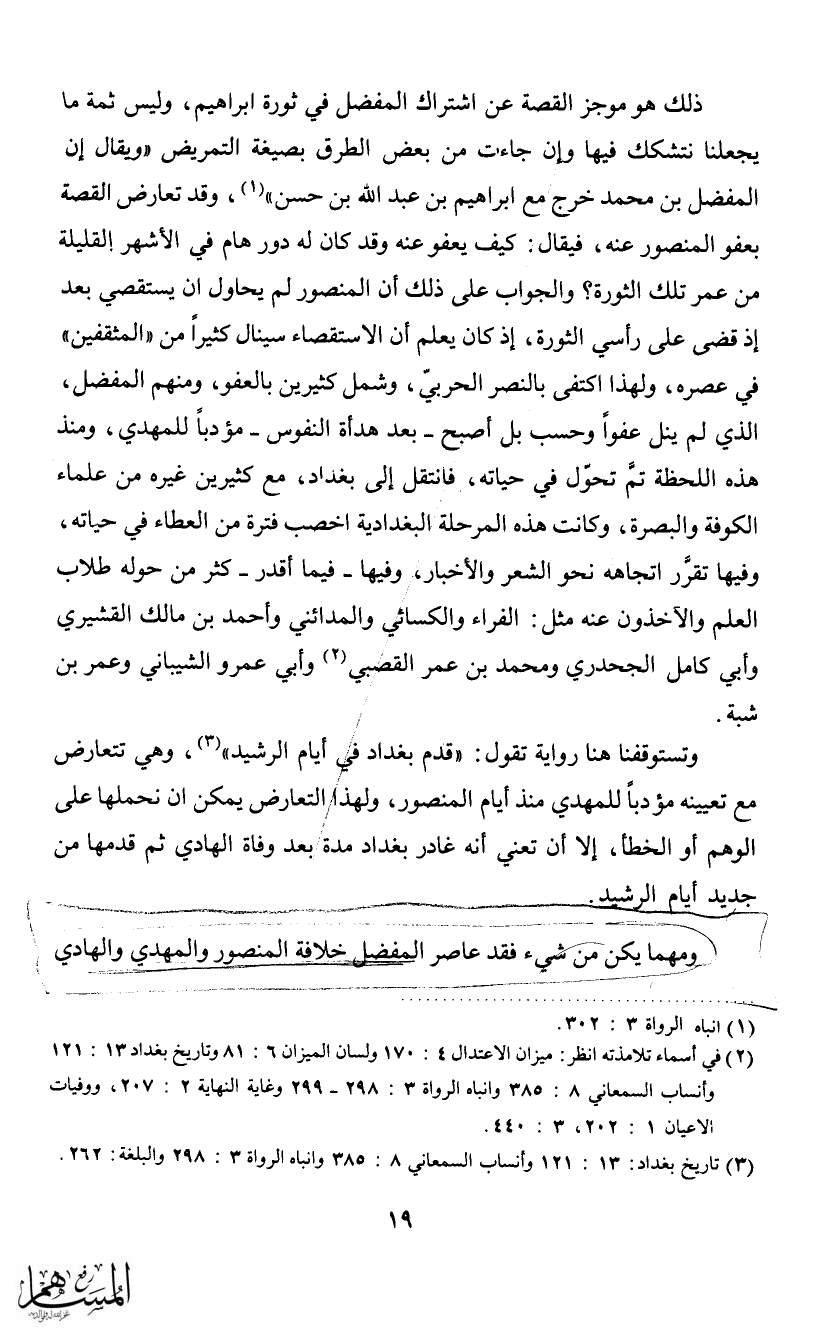 ذلك هو موجز القصة عن اشتراك المفضل في ثورة ابراهيم، وليس ثمة ما
يجعلنا نتشكك فيها وإن جاءت من بعض الطرق بصيغة التمريض «ويقال إن
المفضل بن محمد خرج مع ابراهيم بن عبد الله بن حسن»(١)، وقد تعارض القصة
بعفو المنصور عنه، فيقال: كيف يعفو عنه وقد كان له دور هام في الأشهر القليلة
من عمر تلك الثورة؟ والجواب على ذلك أن المنصور لم يحاول ان يستقصي بعد
إذ قضى على رأسي الثورة، إذ كان يعلم أن الاستقصاء سينال كثيراً من «المثقفين»
في عصره، ولهذا اكتفى بالنصر الحربيّ، وشمل كثيرين بالعفو، ومنهم المفضل،
الذي لم ينل عفواً وحسب بل أصبح ـ بعد هدأة النفوس ـ مؤدباً للمهدي، ومنذ
هذه اللحظة تمَّ تحوّل في حياته، فانتقل إلى بغداد، مع كثيرين غيره من علماء
الكوفة والبصرة، وكانت هذه المرحلة البغدادية اخصب فترة من العطاء في حياته،
وفيها تقرَّر اتجاهه نحو الشعر والأخبار، وفيها ـ فيما أقدر ـ كثر من حوله طلاب
العلم والآخذون عنه مثل: الفراء والكسائي والمدائني وأحمد بن مالك القشيري
وأبي كامل الجحدري ومحمد بن عمر القصبي(٢) وأبي عمرو الشيباني وعمر بن
شبة.
وتستوقفنا هنا رواية تقول: «قدم بغداد في أيام الرشيد»(٣)، وهي تتعارض
مع تعيينه مؤدباً للمهدي منذ أيام المنصور، ولهذا التعارض يمكن ان نحملها على
الوهم أو الخطأ، إلا أن تعني أنه غادر بغداد مدة بعد وفاة الهادي ثم قدمها من
جديد أيام الرشيد.
ومهما يكن من شيء فقد عاصر المفضل خلافة المنصور والمهدي والهادي
(١) انباه الرواة ٣ : ٣٠٢.
(٢) في أسماء تلامذته انظر: ميزان الاعتدال ٤ : ١٧٠ ولسان الميزان ٦ : ٨١ وتاريخ بغداد ١٣ : ١٢١
وأنساب السمعاني ٨ : ٣٨٥ وانباه الرواة ٣ : ٢٩٨ ـ ٢٩٩ وغاية النهاية ٢ : ٢٠٧، ووفيات
الاعيان ١ : ٢٠٢، ٣ : ٤٤٠.
(٣) تاريخ بغداد: ١٣ : ١٢١ وأنساب السمعاني ٨ : ٣٨٥ وانباه الرواة ٣ : ٢٩٨ والبلغة: ٢٦٢.
١٩
رفع
المساهم